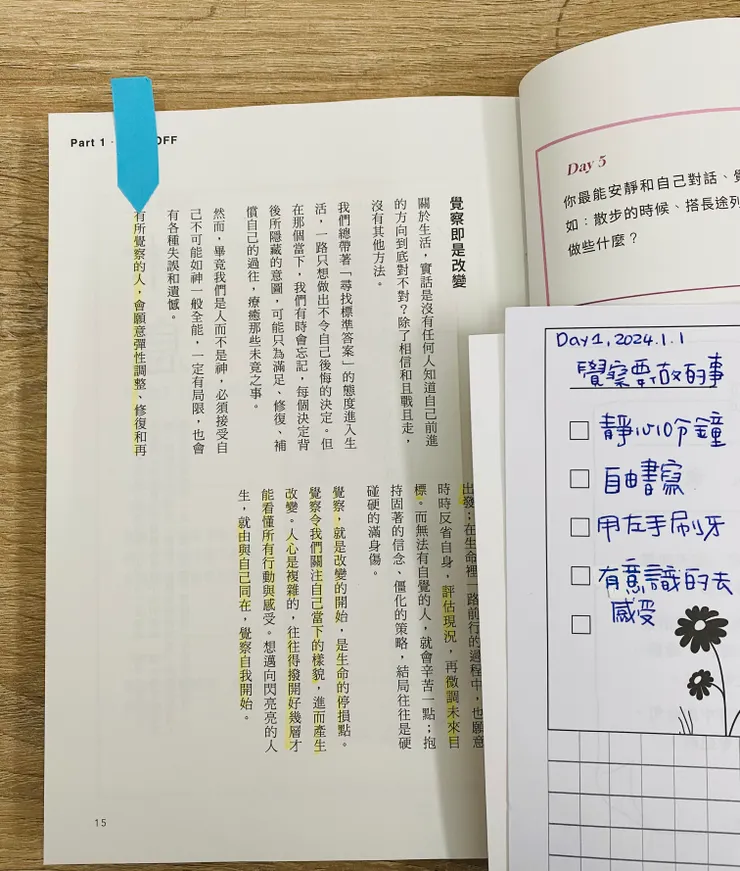 Part 1 · OFF
覺察即是改變
關於生活，實話是沒有任何人知道自己前進
的方向到底對不對？除了相信和且戰且走，
沒有其他方法。
我們總帶著「尋找標準答案」的態度進入生
活，一路只想做出不令自己後悔的決定。但
在那個當下，我們有時會忘記，每個決定背
後所隱藏的意圖，可能只為滿足、修復、補
償自己的過往，療癒那些未竟之事。
然而，畢竟我們是人而不是神，必須接受自
己不可能如神一般全能，一定有局限，也會
有各種失誤和遺憾。
有所覺察的人，會願意彈性調整、修復和再
出發；在生命裡一路前行的過程中，也願意
時時反省自身，評估現況，再微調未來目
標。而無法有自覺的人，就會辛苦一點；抱
持固著的信念、僵化的策略，結局往往是硬
碰硬的滿身傷。
覺察，就是改變的開始，是生命的停損點。
覺察令我們關注自己當下的樣貌，進而產生
改變。人心是複雜的，往往得撥開好幾層才
能看懂所有行動與感受。想邁向閃亮亮的人
生，就由與自己同在，覺察自我開始。
15
Day 5
你最能安靜和自己對話、
如：散步的時候、搭長途列
做些什麼？
Day 1, 2024.1.1
覺察要做的事
靜心10分鐘
自由書寫
用左手刷牙
有意識的去
感受